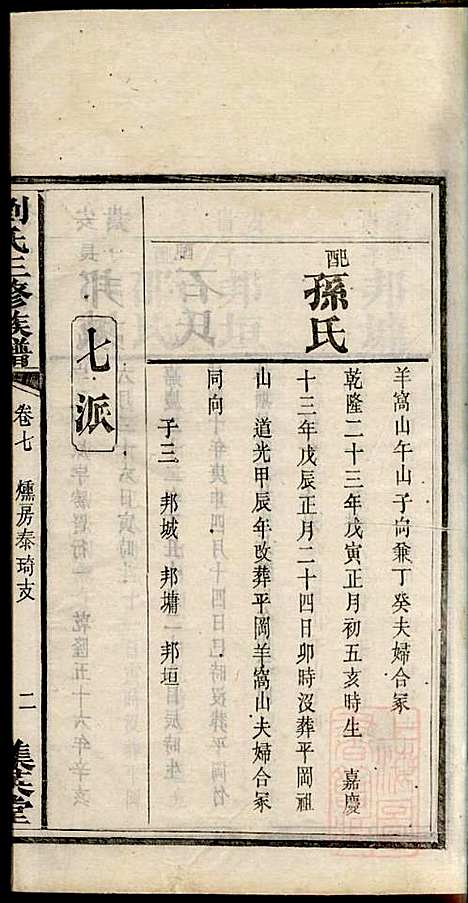 羊窩山午山子向兼丁癸夫婦合冢
配
孫氏
乾隆二十三年戊寅正月初五亥時生 嘉慶
十三年戊辰正月二十四日卯時沒葬平岡祖
山 道光甲辰年改葬平岡羊窩山夫婦合冢
同向
子三 邦城 邦墉 邦垣
七派
劉氏三修族譜
卷七 燻房泰琦支 二
集英堂